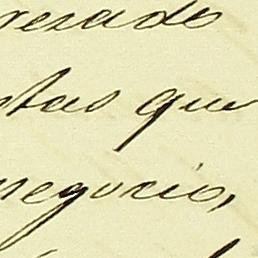 resado
otas que
negocio,